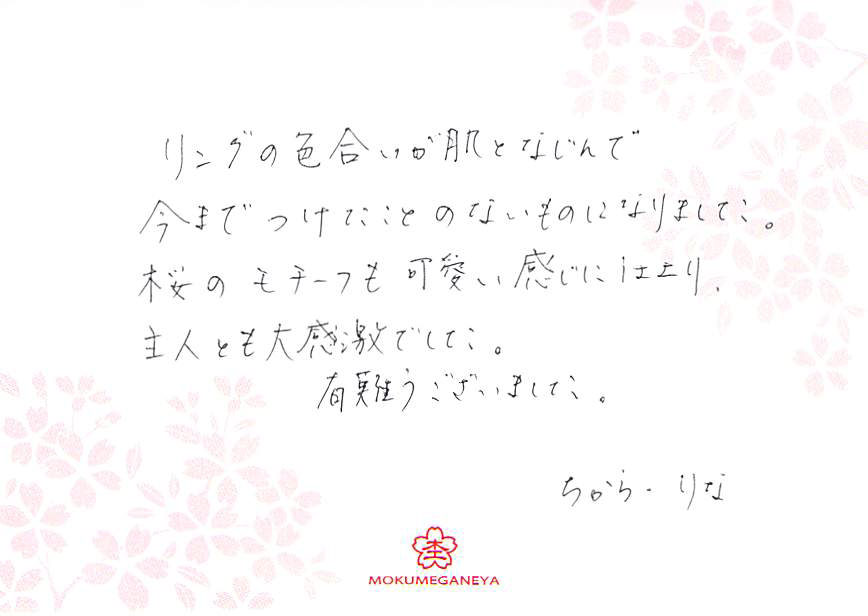 リングの色合いが肌となじんで
今までつけたことのないものになりました。
桜のモチーフも可愛い感じに仕上り、
主人とも大感激でした。
有難うございました。
ちから・りな
MOKUMEGANEYA